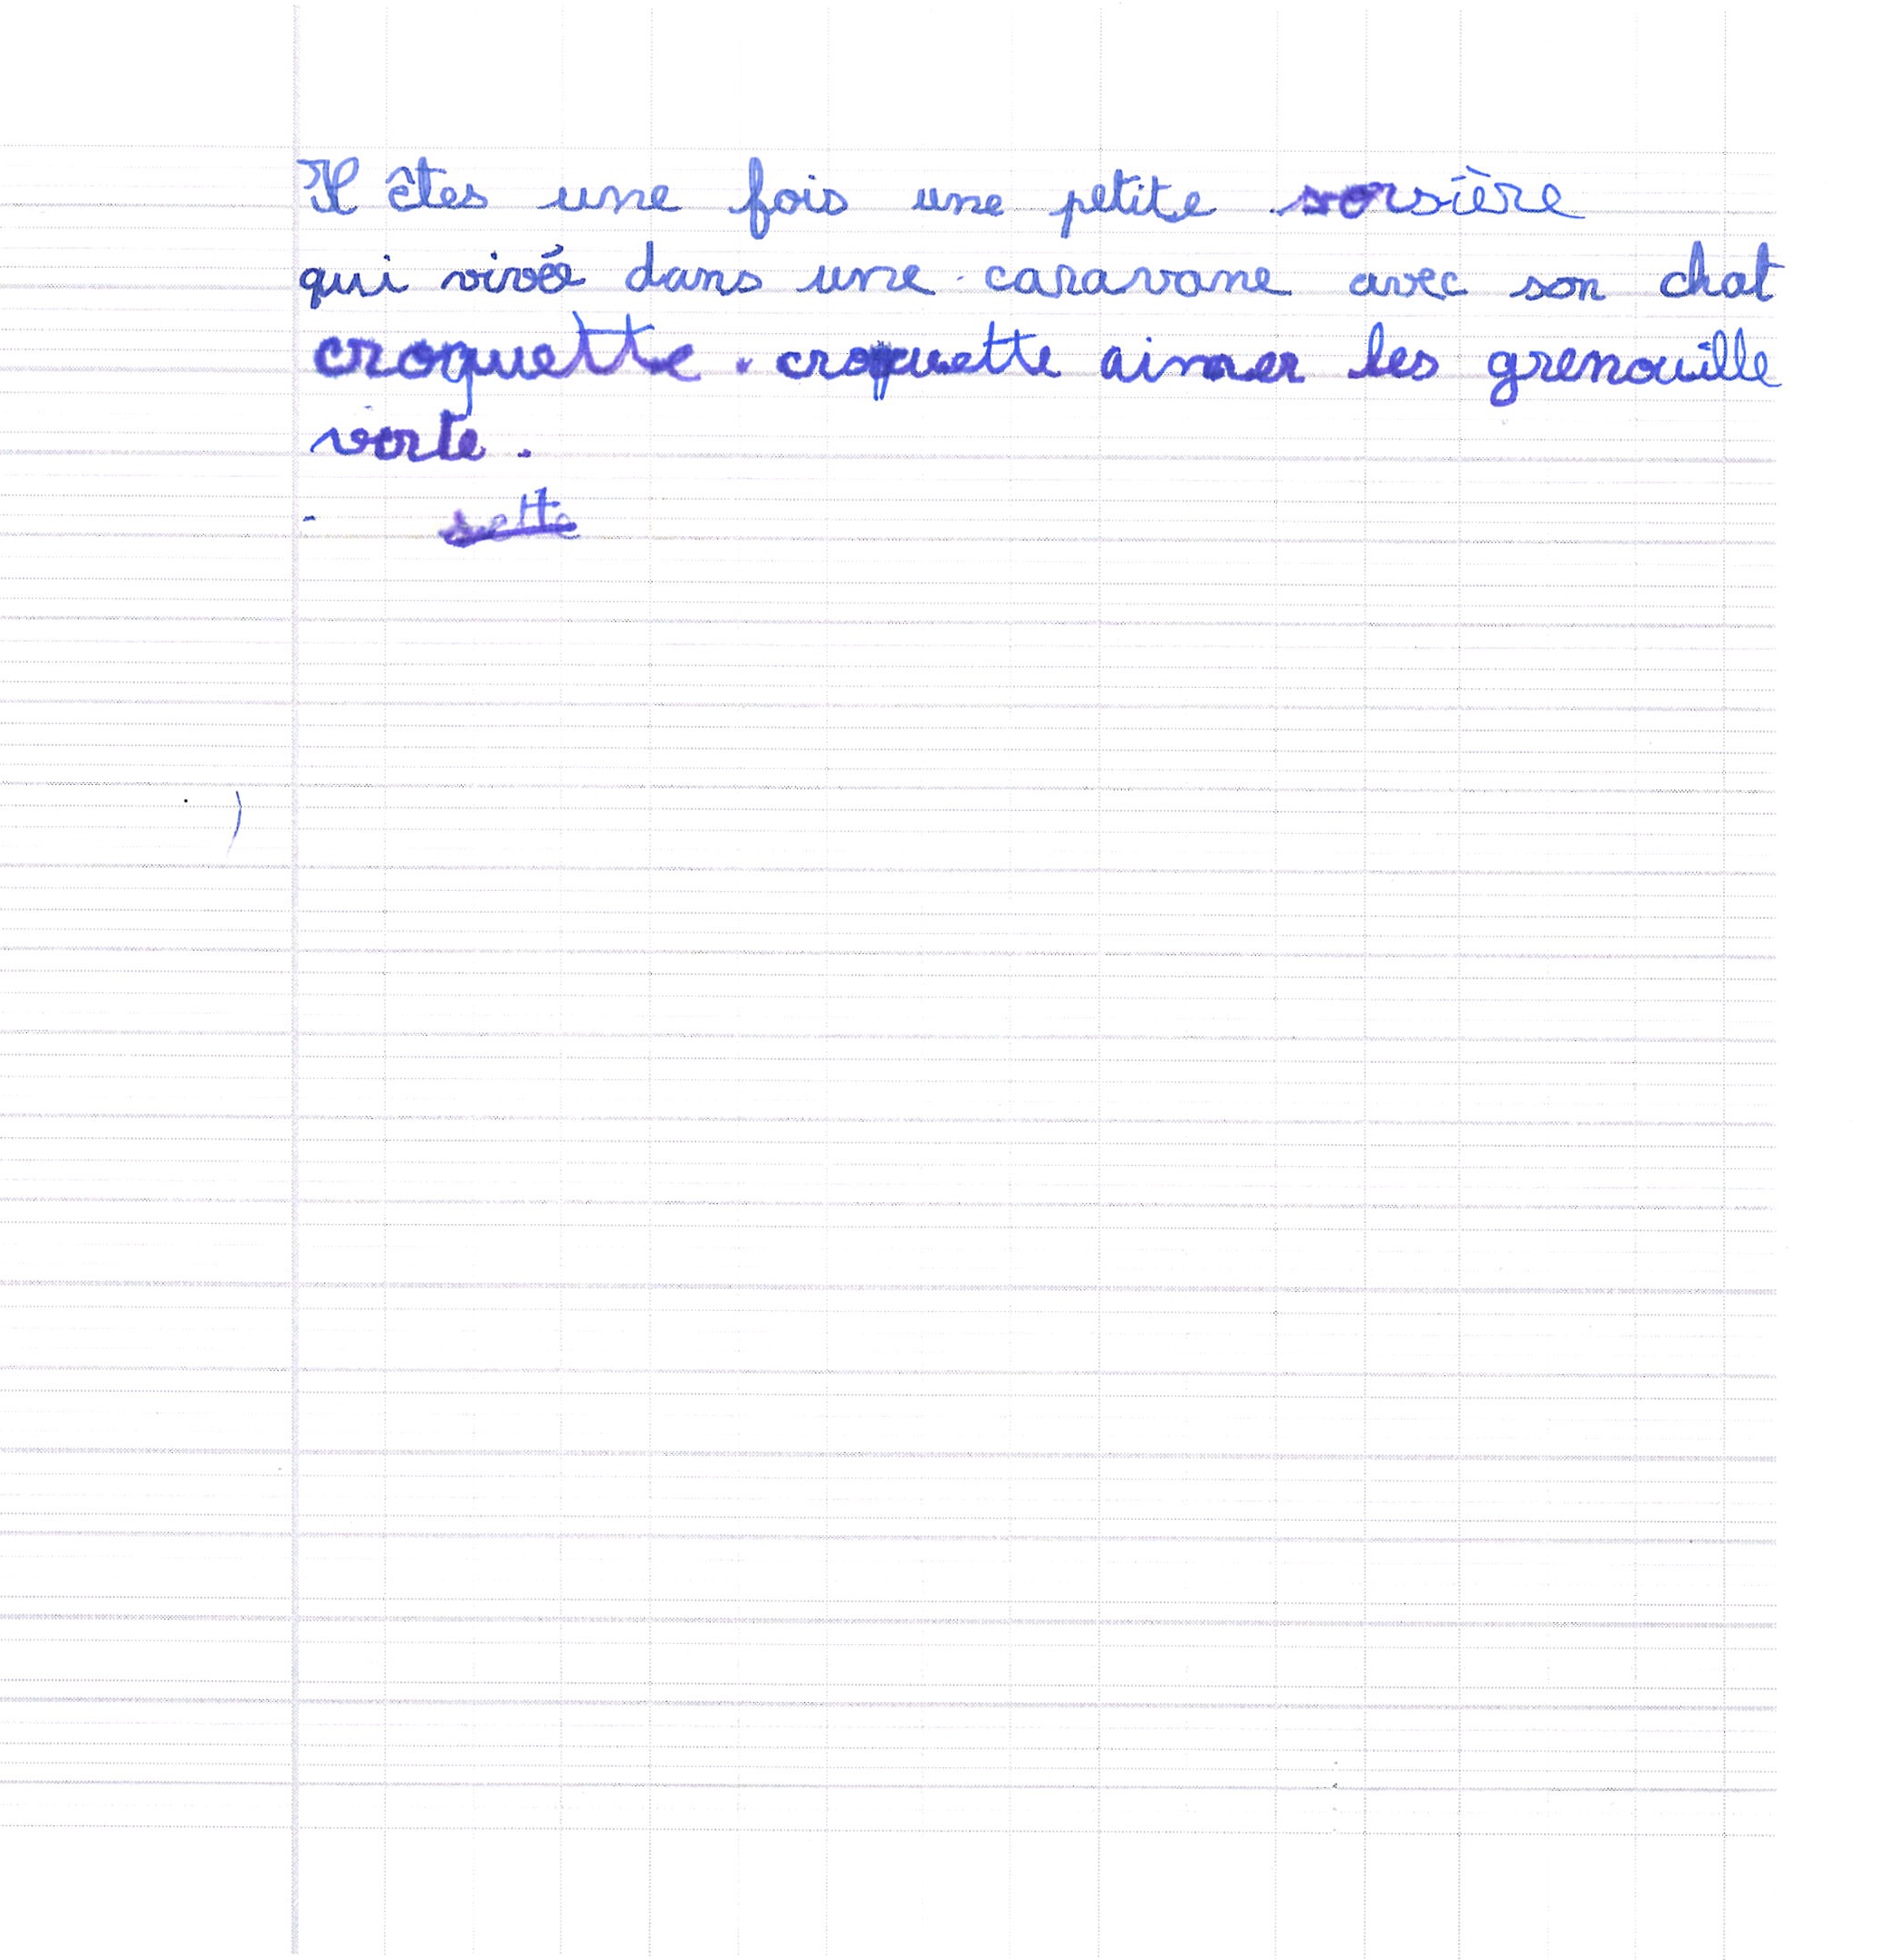 Il êtes une fois une petite sorsière
qui vivée dans une caravane avec son chat
croquette. croquette aimer les grenouille
verte.
- sette